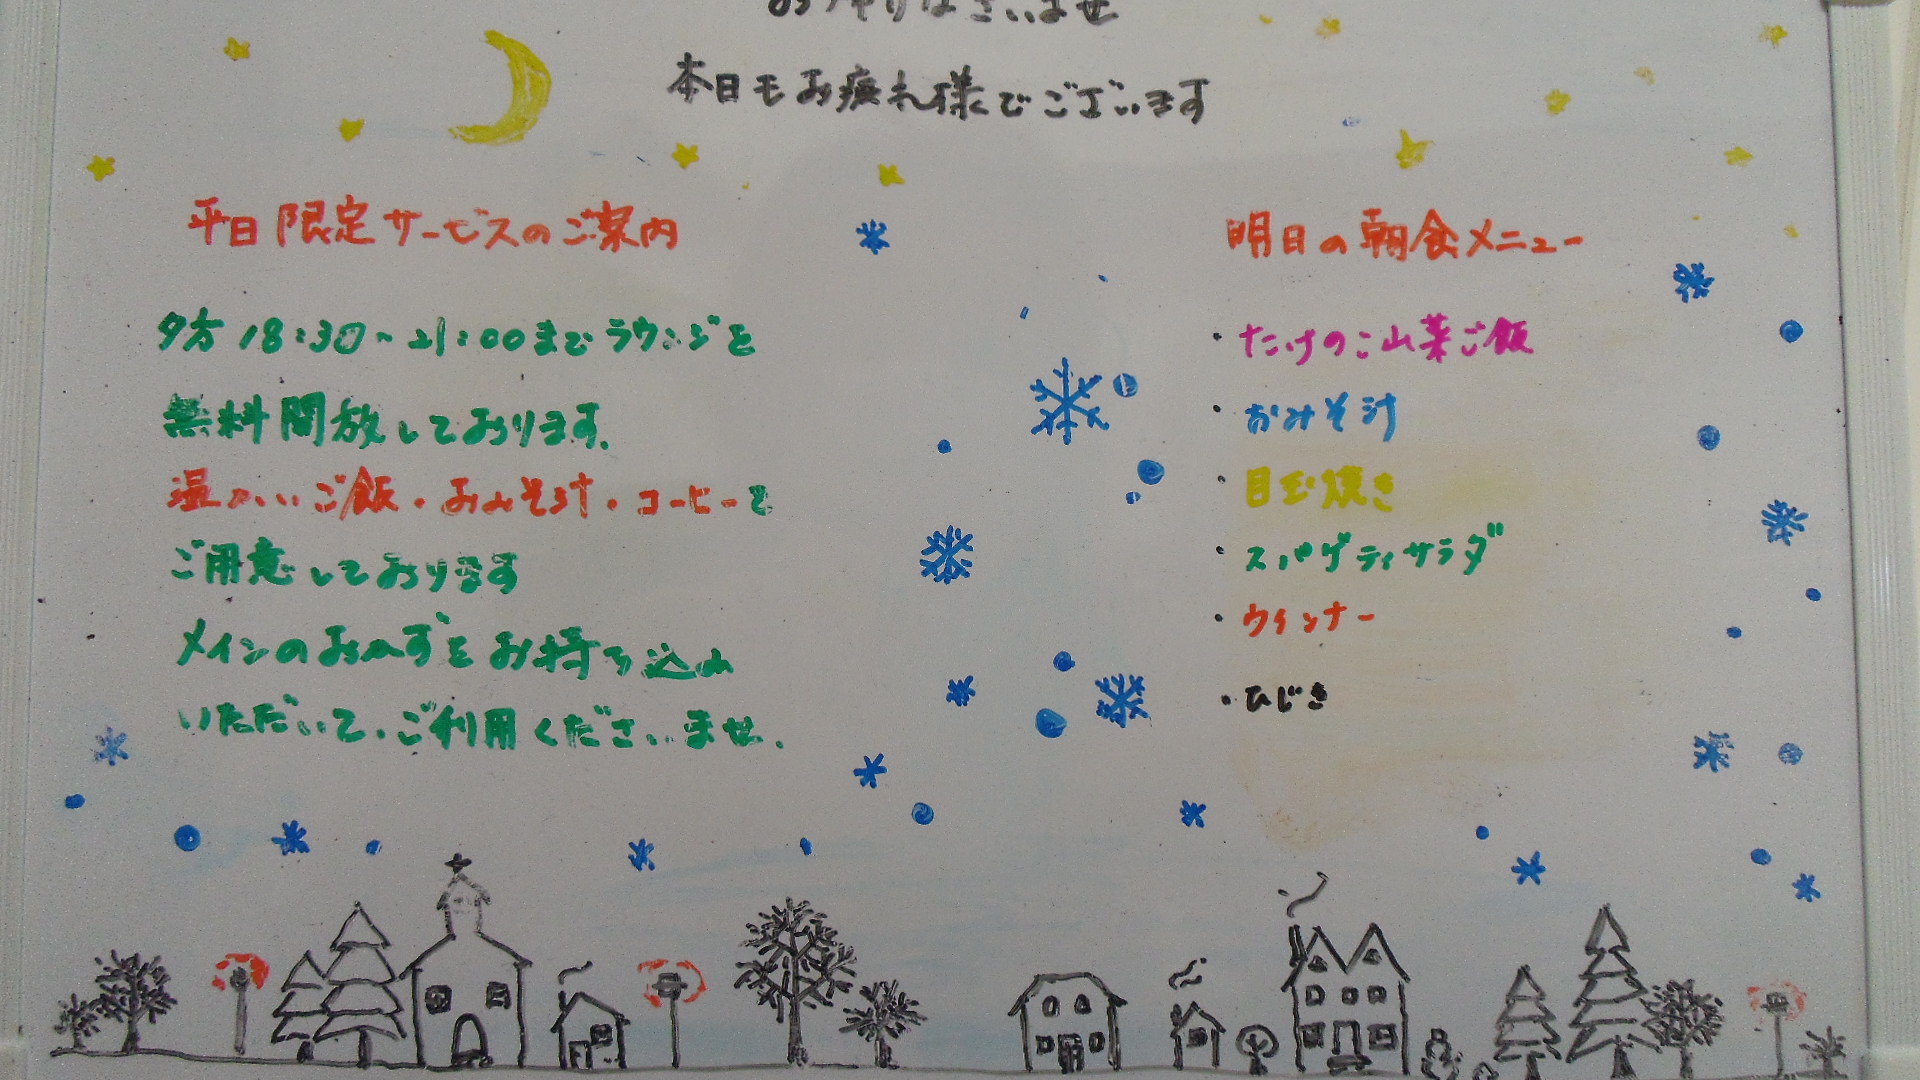 お帰りなさいませ
本日もお疲れ様でございます
平日限定サービスのご案内
夕方18:30~21:00までラウンジを
無料開放しております.
温かいご飯・おみそ汁・コーヒーを
ご用意しております
メインのおかずをお持ち込み
いただいて.ご利用くださいませ.
明日の朝食メニュー
・たけのこ山菜ご飯
・おみそ汁
・目玉焼き
・スパゲティサラダ
・ウインナー
・ひじき